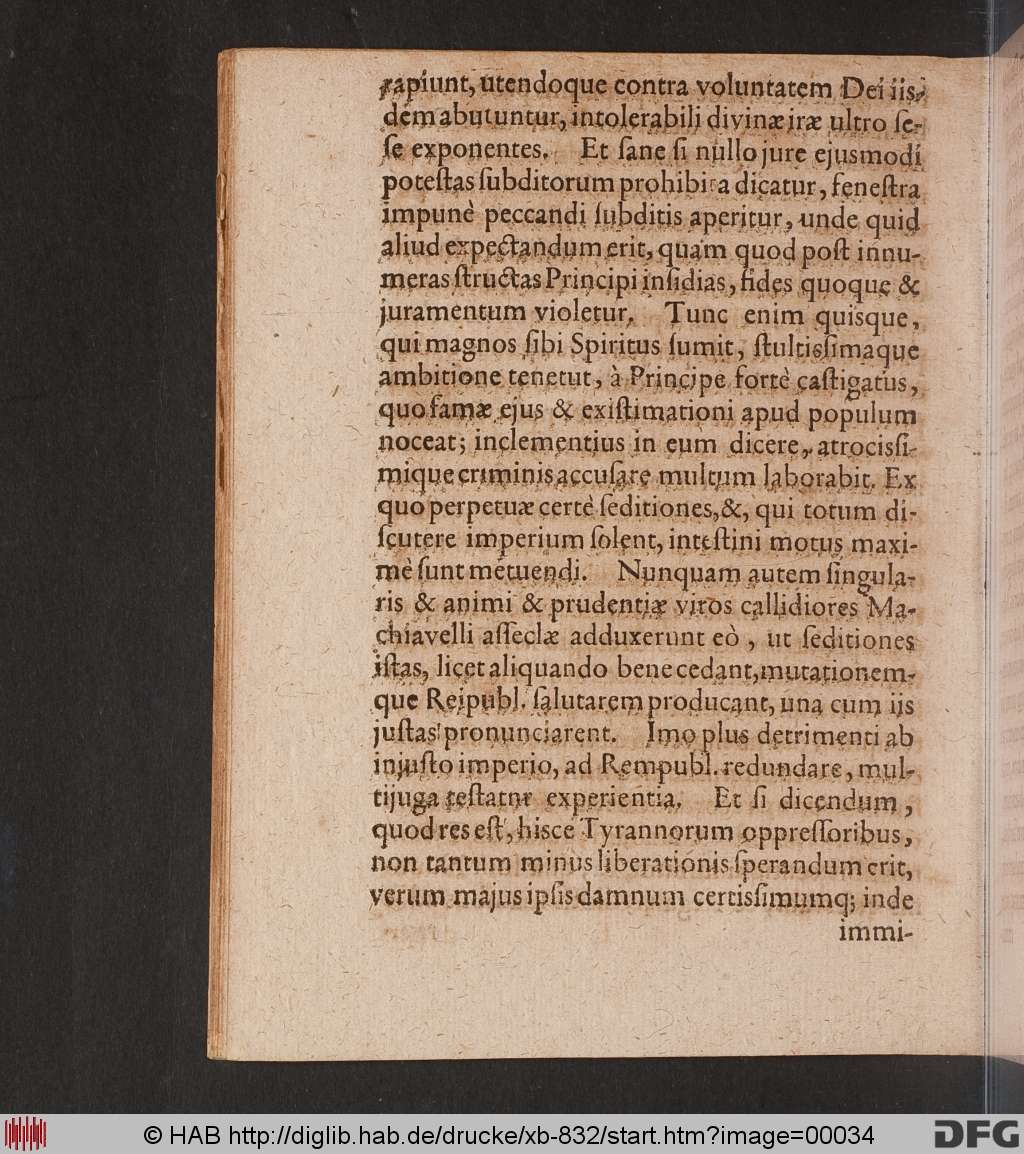 rapiunt, utendoque contra voluntatem Dei iis-
dem abutuntur, intolerabili divinæ iræ ultro ſe-
ſe exponentes. Et ſane ſi nullo jure ejusmodi
poteſtas ſubditorum prohibita dicatur, feneſtra
impunè peccandi ſubditis aperitur, unde quid
aliud expectandum erit, quam quod poſt innu-
meras ſtructas Principi inſidias, fides quoque &
juramentum violetur. Tunc enim quisque,
qui magnos ſibi Spiritus ſumit, ſtultisſimaque
ambitione tenetut, à Principe fortè caſtigatus,
quo famæ ejus & exiſtimationi apud populum
noceat; inclementius in eum dicere, atrocisſi-
mique criminis accuſare multum laborabit. Ex
quo perpetuæ certè ſeditiones, &, qui totum di-
ſcutere imperium ſolent, inteſtini motus maxi-
mè ſunt metuendi. Nunquam autem ſingula-
ris & animi & prudentiæ viros callidiores Ma-
chiavelli aſſeclæ adduxerunt eò, ut ſeditiones
iſtas, licet aliquando bene cedant, mutationem-
que Reipubl. ſalutarem producant, una cum iis
juſtas pronunciarent. Imo plus detrimenti ab
injuſto imperio, ad Rempubl. redundare, mul-
tijuga teſtatur experientia. Et ſi dicendum,
quod res eſt, hisce Tyrannorum oppreſſoribus,
non tantum minus liberationis ſperandum erit,
verum majus ipſis damnum certisſimumq; inde
immi-
© HAB http://diglib.hab.de/drucke/xb-832/start.htm?image=00034
DFG